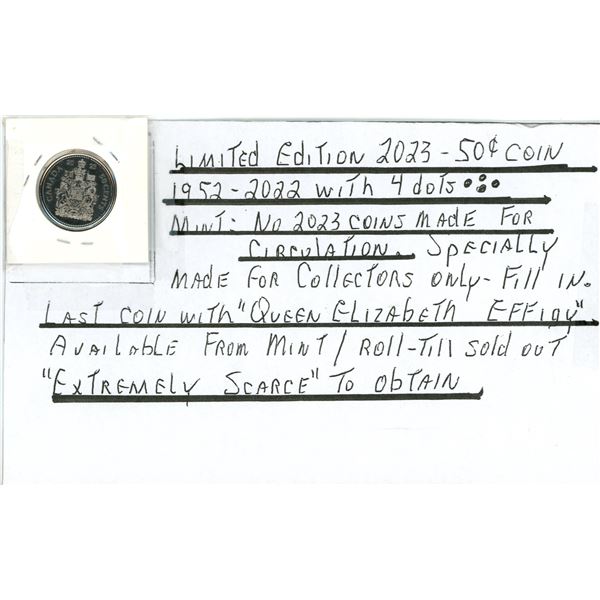 CANADA 50 CENTS
Limited Edition 2023 - 50¢ Coin
1952 - 2022 with 4 dots
Mint: No 2023 coins made for
Circulation. Specially
made for Collectors only - Fill in.
Last coin with "Queen Elizabeth Effigy".
Available From Mint / Roll-Till sold out
"Extremely Scarce" To obtain